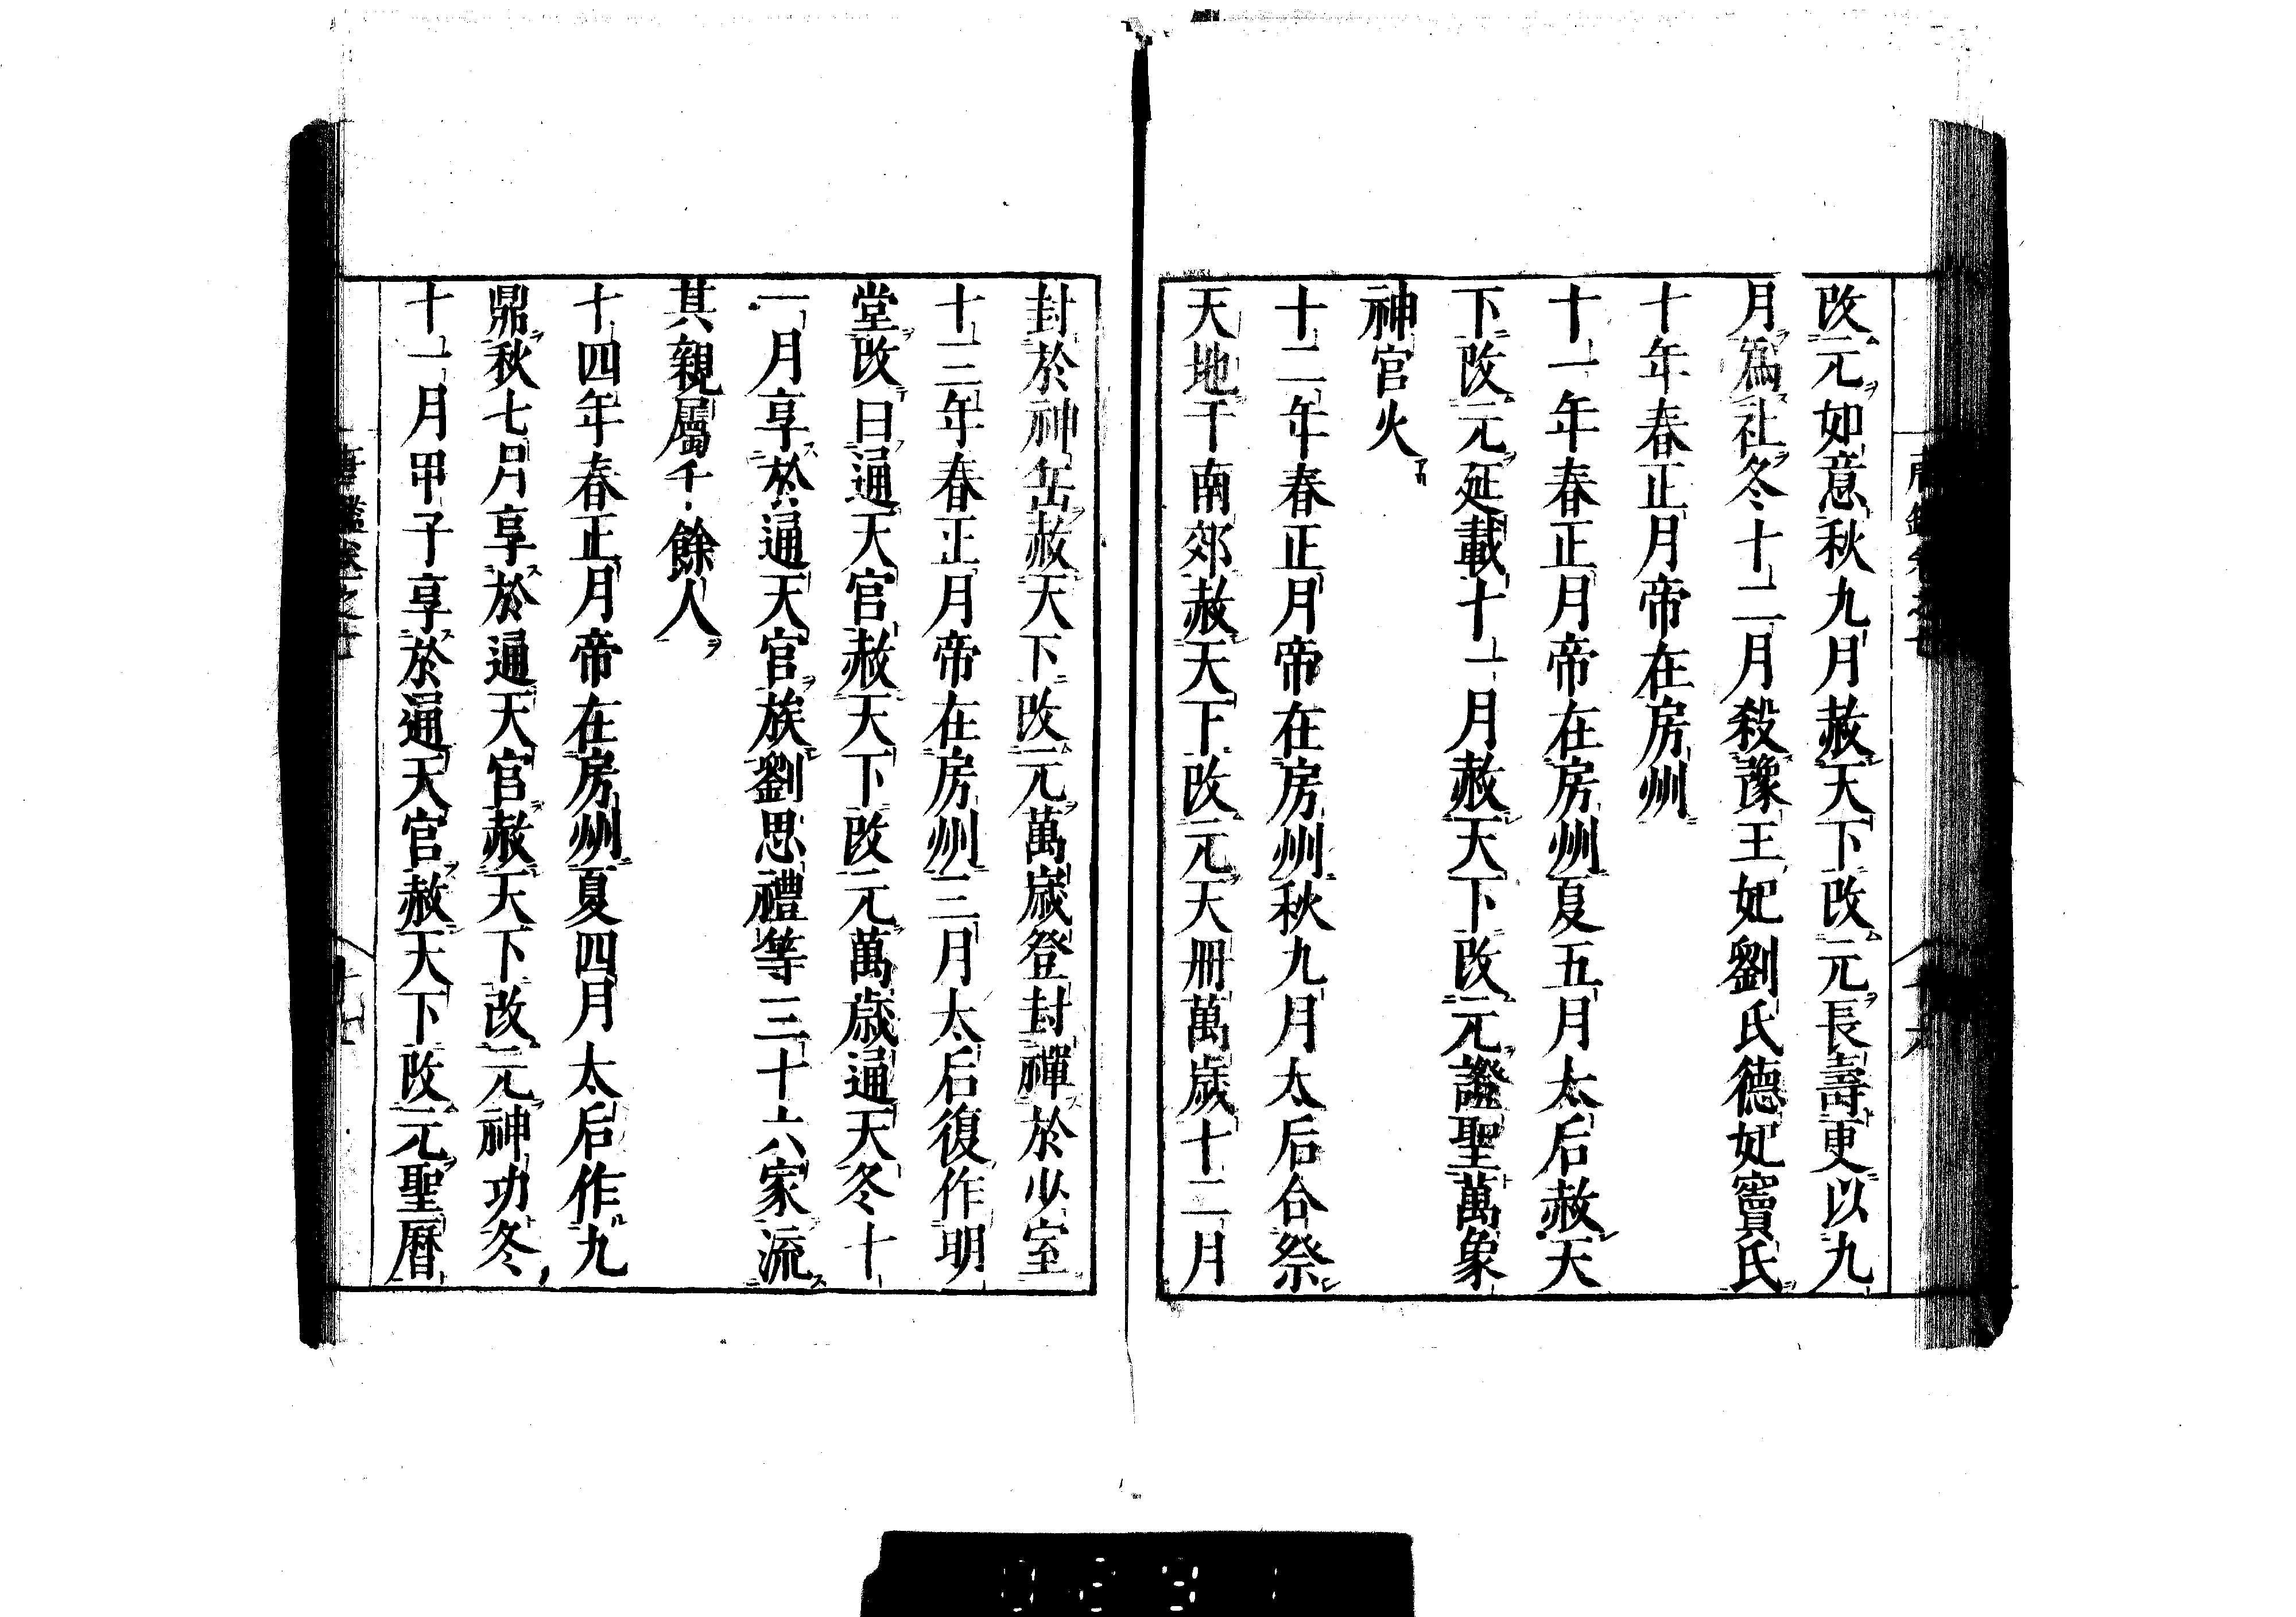 改元如意秋九月赦天下改元長壽更以九
月爲社冬十二月殺豫王妃劉氏德妃竇氏
十年春正月帝在房州
十一年春正月帝在房州夏五月太后赦天
下改元延載十一月赦天下改元證聖萬象
神宮火
十二年春正月帝在房州秋九月太后合祭
天地于南郊赦天下改元天冊萬歲十二月
封於神岳赦天下改元萬歲登封禪於少室
十三年春正月帝在房州三月太后復作明
堂改曰通天宮赦天下改元萬歲通天冬十
一月享於通天宮族劉思禮等三十六家流
其親屬千餘人
十四年春正月帝在房州夏四月太后作九
鼎秋七月享於通天宮赦天下改元神功冬
十一月甲子享於通天宮赦天下改元聖曆